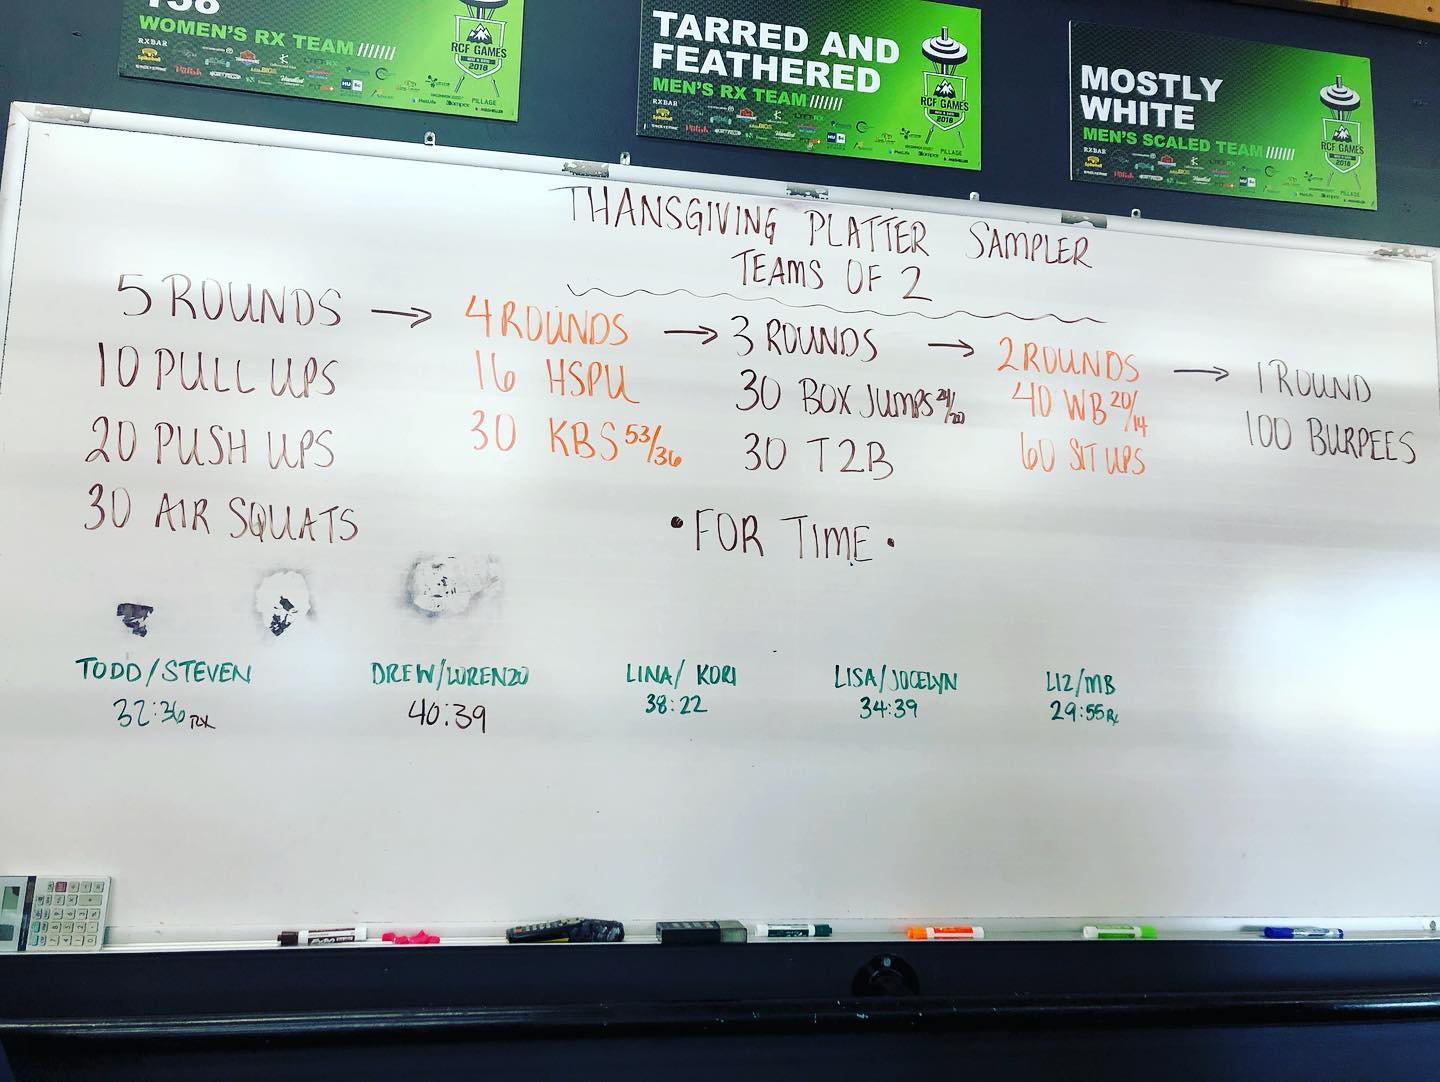 WOMEN'S RX TEAM ///////
RXBAR
RCF GAMES
2018
PILLAGE
TARRED AND
FEATHERED
MEN'S RX TEAM ///////
RXBAR
RCF GAMES
2018
PILLAGE
MOSTLY
WHITE
MEN'S SCALED TEAM ///////
RXBAR
RCF GAMES
2018
PILLAGE
THANSGIVING PLATTER SAMPLER
TEAMS OF 2
5 ROUNDS →
10 PULL UPS
20 PUSH UPS
30 AIR SQUATS
4 ROUNDS →
16 HSPU
30 KBS 53/36
3 ROUNDS →
30 BOX JUMPS 24/20
30 T2B
2 ROUNDS →
40 WB 20/14
60 SIT UPS
1 ROUND
100 BURPEES
• FOR TIME •
TODD/STEVEN
32:36 RX
DREW/LORENZO
40:39
LINA/KORI
38:22
LISA/JOCELYN
34:39
LIZ/MB
29:55 Rx